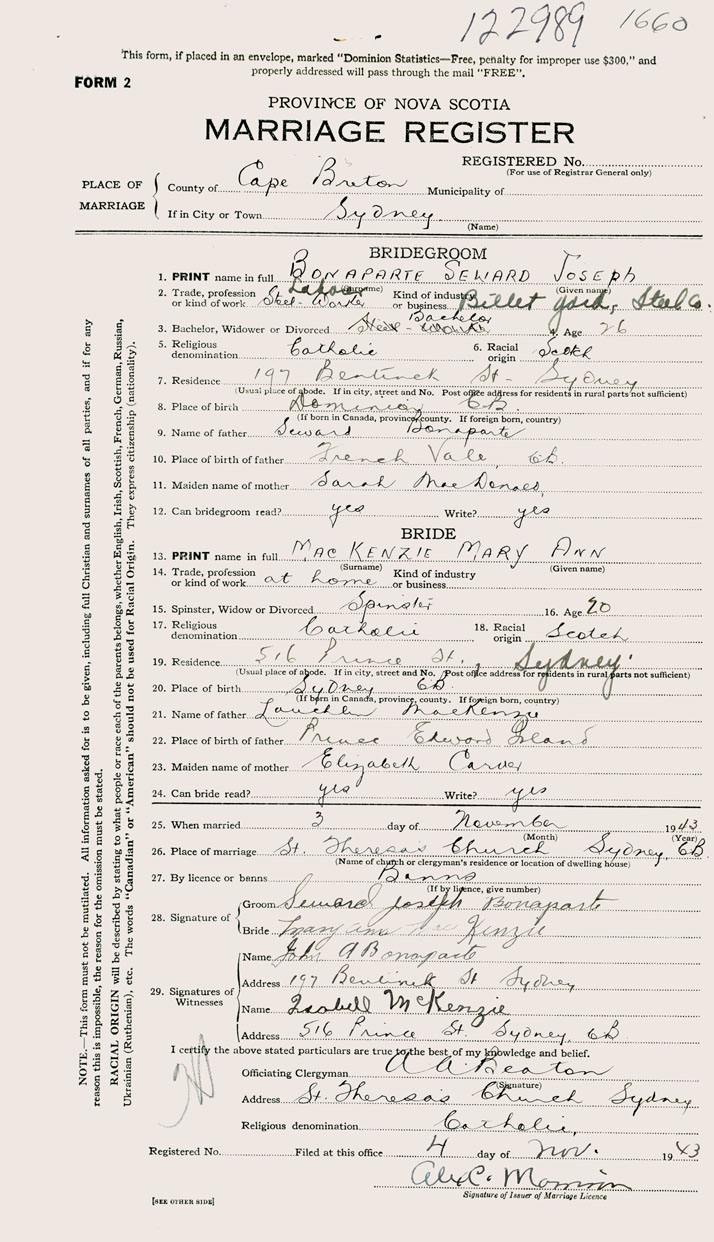 122989 1660
This form, if placed in an envelope, marked "Dominion Statistics—Free, penalty for improper use $300," and
properly addressed will pass through the mail "FREE".
FORM 2
PROVINCE OF NOVA SCOTIA
MARRIAGE REGISTER
REGISTERED No.
(For use of Registrar General only)
PLACE OF MARRIAGE
County of Cape Breton Municipality of
If in City or Town Sydney
(Name)
BRIDEGROOM
1. PRINT name in full BONAPARTE SEWARD JOSEPH
(Surname) (Given name)
2. Trade, profession or kind of work Steel-Worker Labourer Kind of industry or business Billet yard, Steel Co.
3. Bachelor, Widower or Divorced Steel-Worker Bachelor 4. Age 26
5. Religious denomination Catholic 6. Racial origin Scotch
7. Residence 197 Bentinck St. Sydney
(Usual place of abode. If in city, street and No. Post office address for residents in rural parts not sufficient)
8. Place of birth Dominion CB.
(If born in Canada, province, county. If foreign born, country)
9. Name of father Seward Bonaparte
10. Place of birth of father French Vale, CB.
11. Maiden name of mother Sarah MacDonald,
12. Can bridegroom read? yes Write? yes
BRIDE
13. PRINT name in full MACKENZIE MARY ANN
(Surname) (Given name)
14. Trade, profession or kind of work at home Kind of industry or business
15. Spinster, Widow or Divorced Spinster 16. Age 20
17. Religious denomination Catholic 18. Racial origin Scotch
19. Residence 516 Prince St., Sydney
(Usual place of abode. If in city, street and No. Post office address for residents in rural parts not sufficient)
20. Place of birth Sydney CB
(If born in Canada, province, county. If foreign born, country)
21. Name of father Lauchlin MacKenzie
22. Place of birth of father Prince Edward Island
23. Maiden name of mother Elizabeth Carver
24. Can bride read? yes Write? yes
25. When married 3 day of November 1943
(Month) (Year)
26. Place of marriage St. Theresa's Church Sydney, CB
(Name of church or clergyman's residence or location of dwelling house)
27. By licence or banns Banns
(If by licence, give number)
28. Signature of
Groom Seward Joseph Bonaparte
Bride Mary Ann Mac Kenzie
29. Signatures of Witnesses
Name John A Bonaparte
Address 197 Bentinck St Sydney
Name Isabell McKenzie
Address 516 Prince St. Sydney, CB
I certify the above stated particulars are true to the best of my knowledge and belief.
Officiating Clergyman A A Beaton
(Signature)
Address St. Theresa's Church Sydney
Religious denomination Catholic,
Registered No. Filed at this office 4 day of Nov. 1943
Alex C. Morrison
Signature of Issuer of Marriage Licence
[SEE OTHER SIDE]
NOTE.—This form must not be mutilated. All information asked for is to be given, including full Christian and surnames of all parties, and if for any
reason this is impossible, the reason for the omission must be stated.
RACIAL ORIGIN will be described by stating to what people or race each of the parents belongs, whether English, Irish, Scottish, French, German, Russian,
Ukrainian (Ruthenian), etc. The words "Canadian" or "American" should not be used for Racial Origin. They express citizenship (nationality).